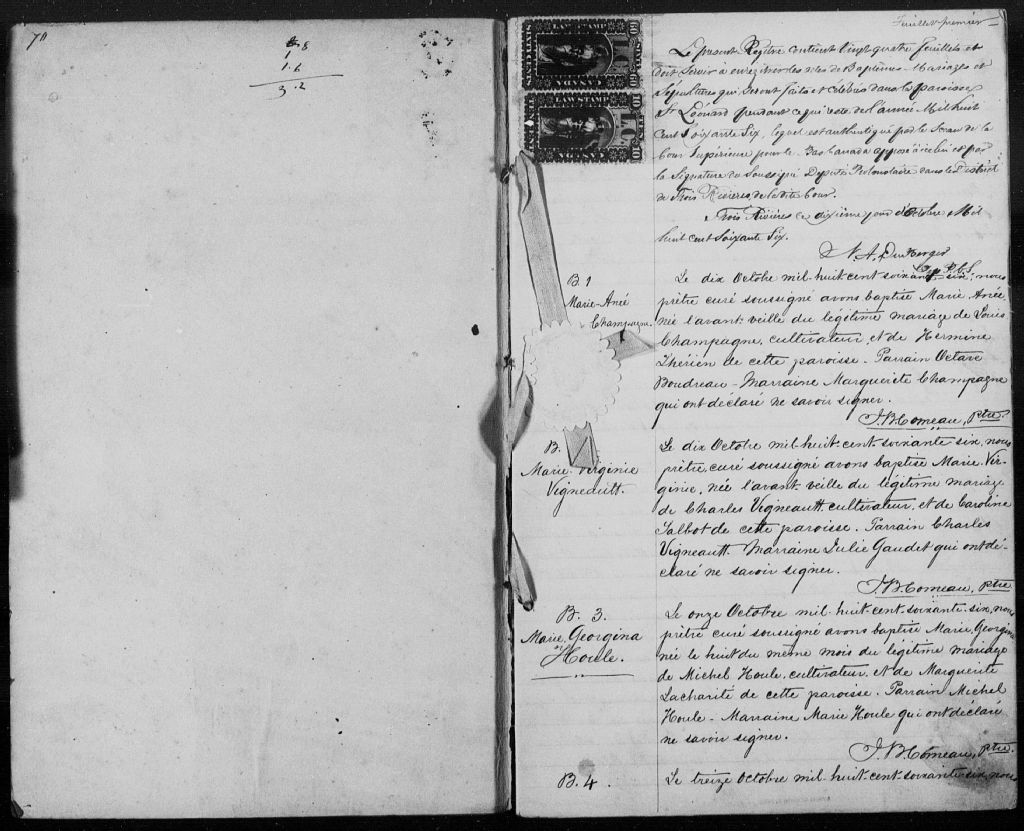 70
8
1
1.6
3.2
Feuillet premier
60
LAW STAMP
LC
CANADA
LAW STAMP
10
LC
CANADA
Le présent Régistre contient vingt quatre feuillets et
doit servir à enregistrer les actes de Baptêmes - Mariages et
Sépultures qui seront faits et célébrés dans la paroisse
St Léonard pendant ce qui reste de l'année Mil huit
Cent Soixante Six, lequel est authentiqué par le Sceau de la
Cour Supérieure pour le Bas Canada apposé à icelui et par
la Signature du Soussigné Député Protonotaire dans le District
de Trois Rivières de la dite Cour.
Trois Rivières ce dixième jour d'Octobre Mil
huit cent Soixante Six.
Dep. P.C.S.
B. 1
Marie-Anée
Champagne.
Le dix Octobre mil-huit-cent soixante-six, nous
prêtre curé soussigné avons baptisé Marie Anée,
née l'avant-veille du légitime mariage de Louis
Champagne, cultivateur, et de Hermine
Thérien de cette paroisse - Parrain Octave
Boudreau - Marraine Marguerite Champagne
qui ont déclaré ne savoir signer.
J. B. Comeau, Ptre.
B.
Marie-Virginie
Vigneault.
Le dix Octobre mil-huit-cent-soixante six, nous
prêtre, curé soussigné avons baptisé Marie-Vir-
ginie, née l'avant-veille du légitime mariage
de Charles Vigneault, cultivateur, et de Caroline
Talbot de cette paroisse. Parrain Charles
Vigneault. Marraine Julie Gaudet qui ont dé-
claré ne savoir signer.
J. B. Comeau, Ptre.
B. 3.
Marie Georgina
Houle.
Le onze Octobre mil-huit-cent-soixante six, nous
prêtre curé soussigné avons baptisé Marie, Georgina
née le huit du même mois du légitime mariage
de Michel Houle, cultivateur, et de Marguerite
Lacharité de cette paroisse. Parrain Michel
Houle - Marraine Marie Houle qui ont déclaré
ne savoir signer.
J. B. Comeau, Ptre.
B. 4.
Le treize Octobre mil-huit-cent-soixante-six, nous